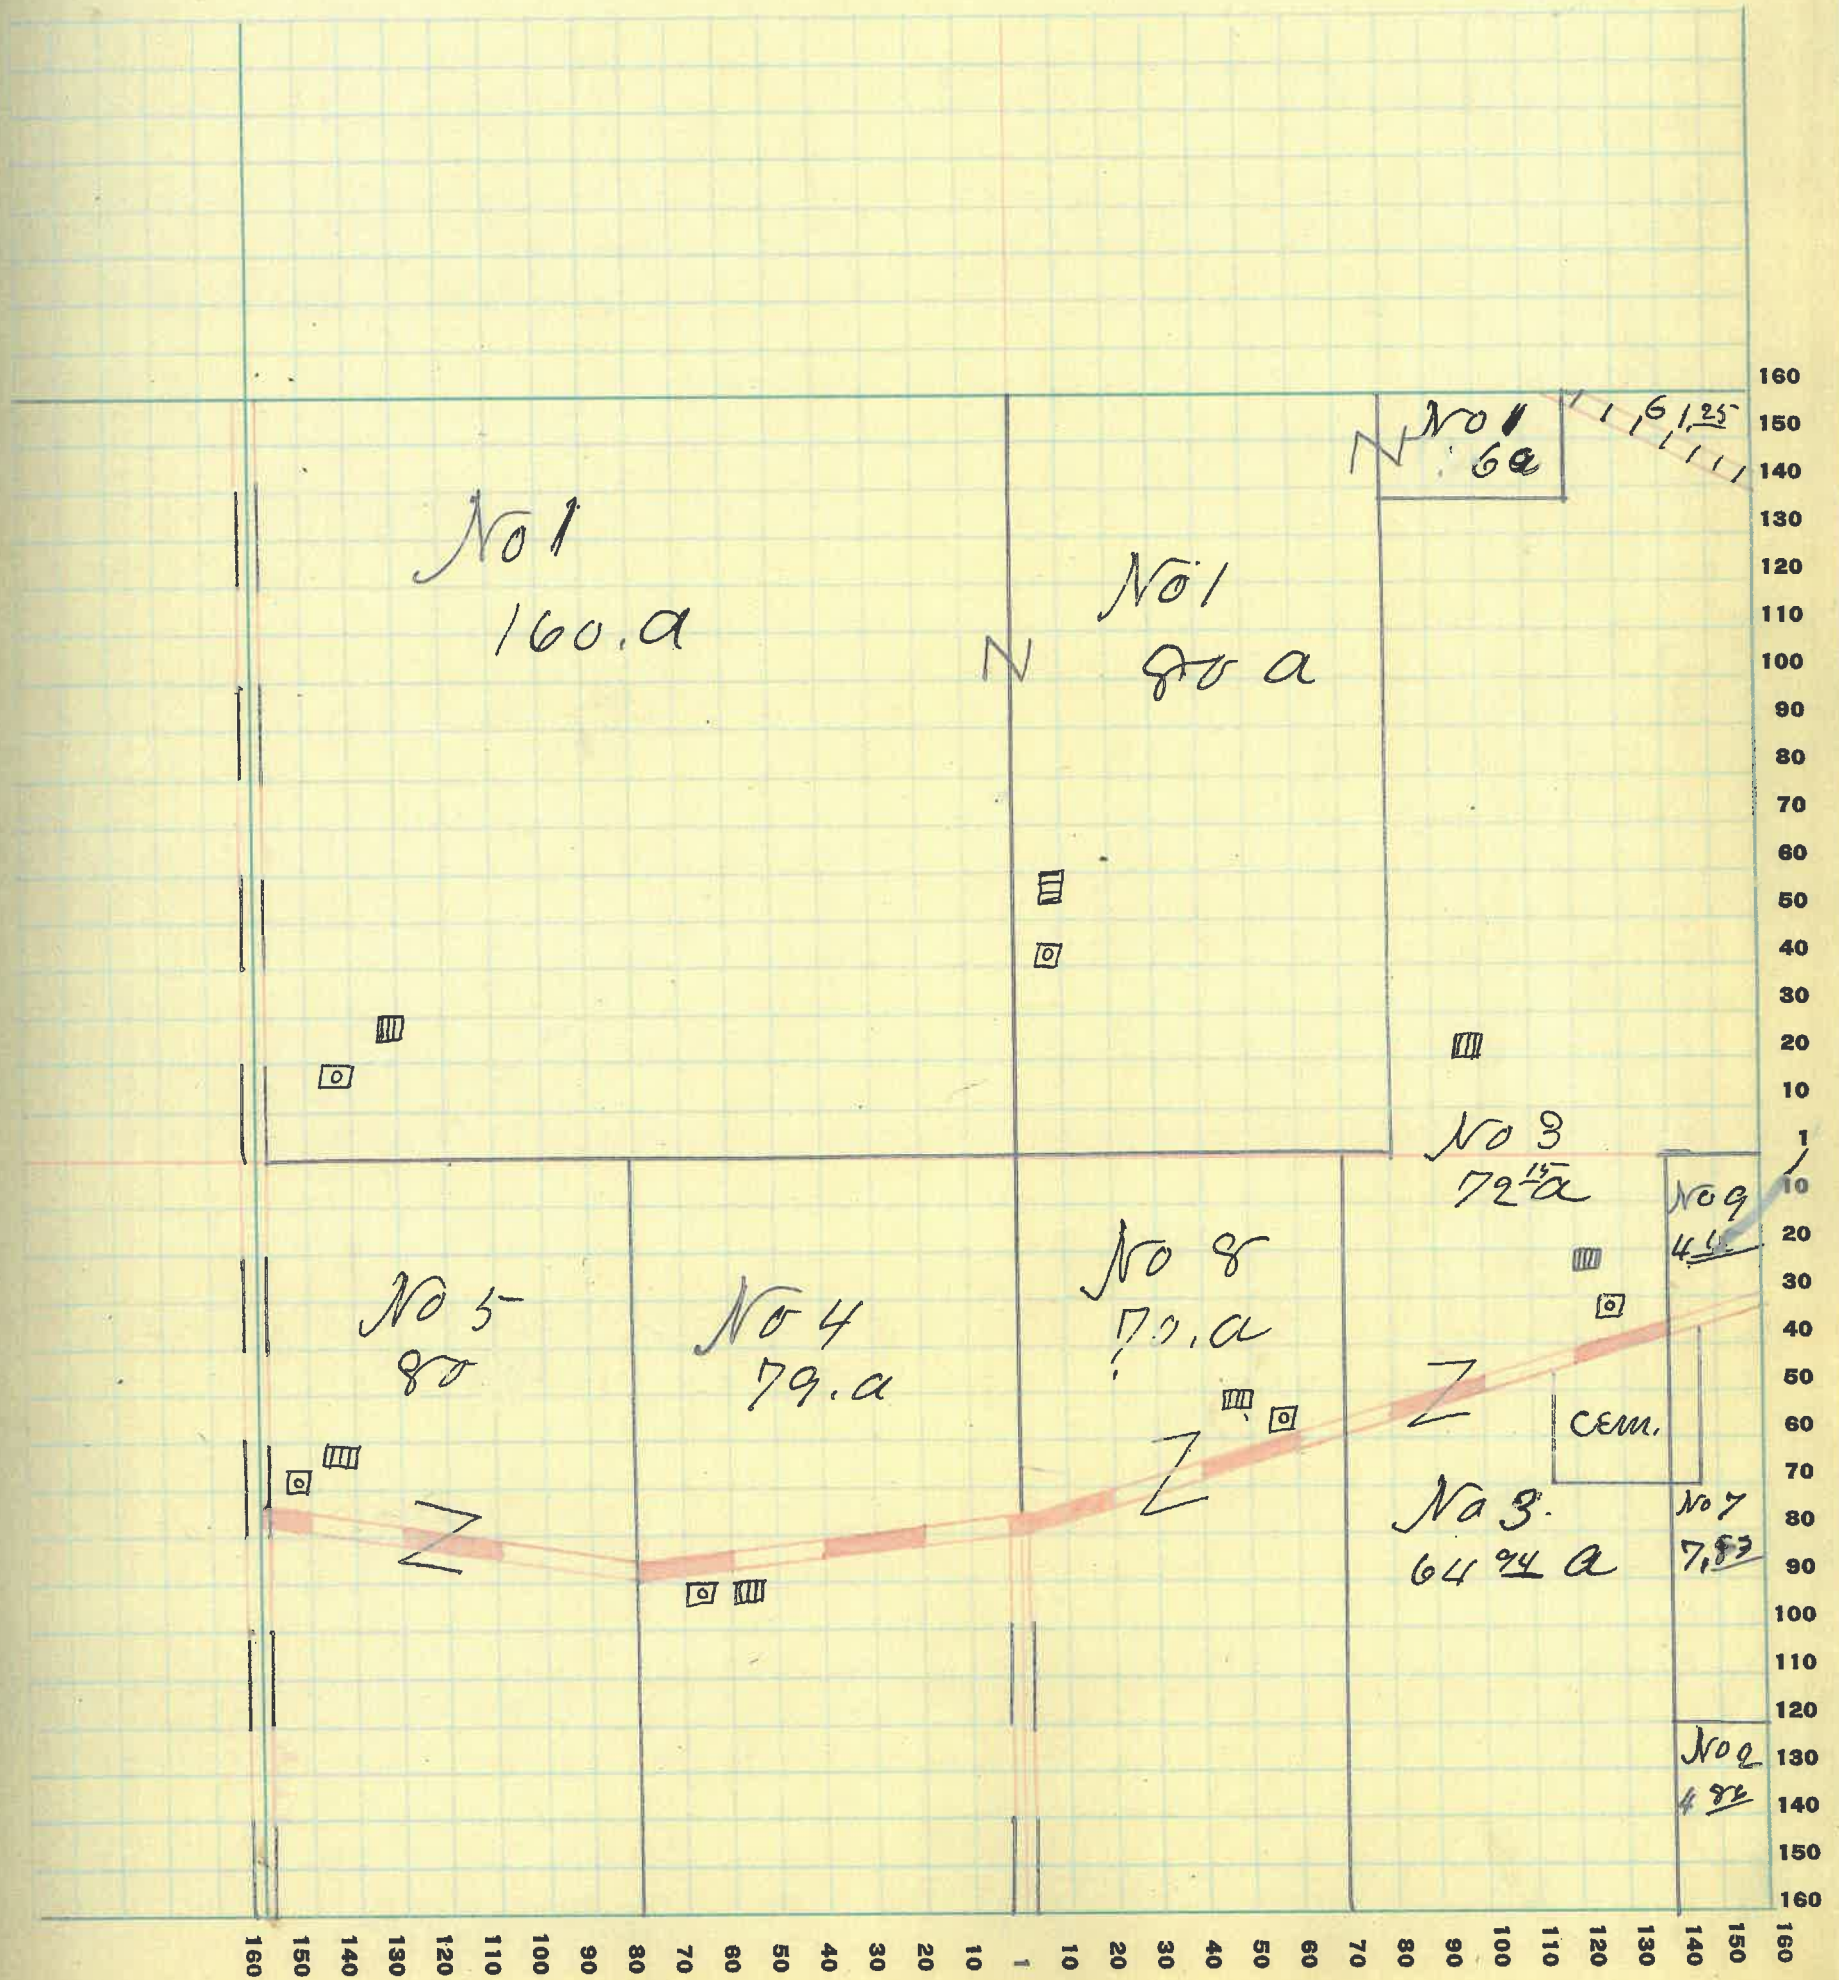 160
150
140
130
120
110
100
90
80
70
60
50
40
30
20
10
1
10
20
30
40
50
60
70
80
90
100
110
120
130
140
150
160
No 1
6a
6 1.25
No 1
160.a
No 1
80 a
No 3
72 15 a
No 9
No 5
80
No 4
79.a
No 8
70.a
CEM.
No 3.
64 94 a
No 7
No 2
160 150 140 130 120 110 100 90 80 70 60 50 40 30 20 10 1 10 20 30 40 50 60 70 80 90 100 110 120 130 140 150 160